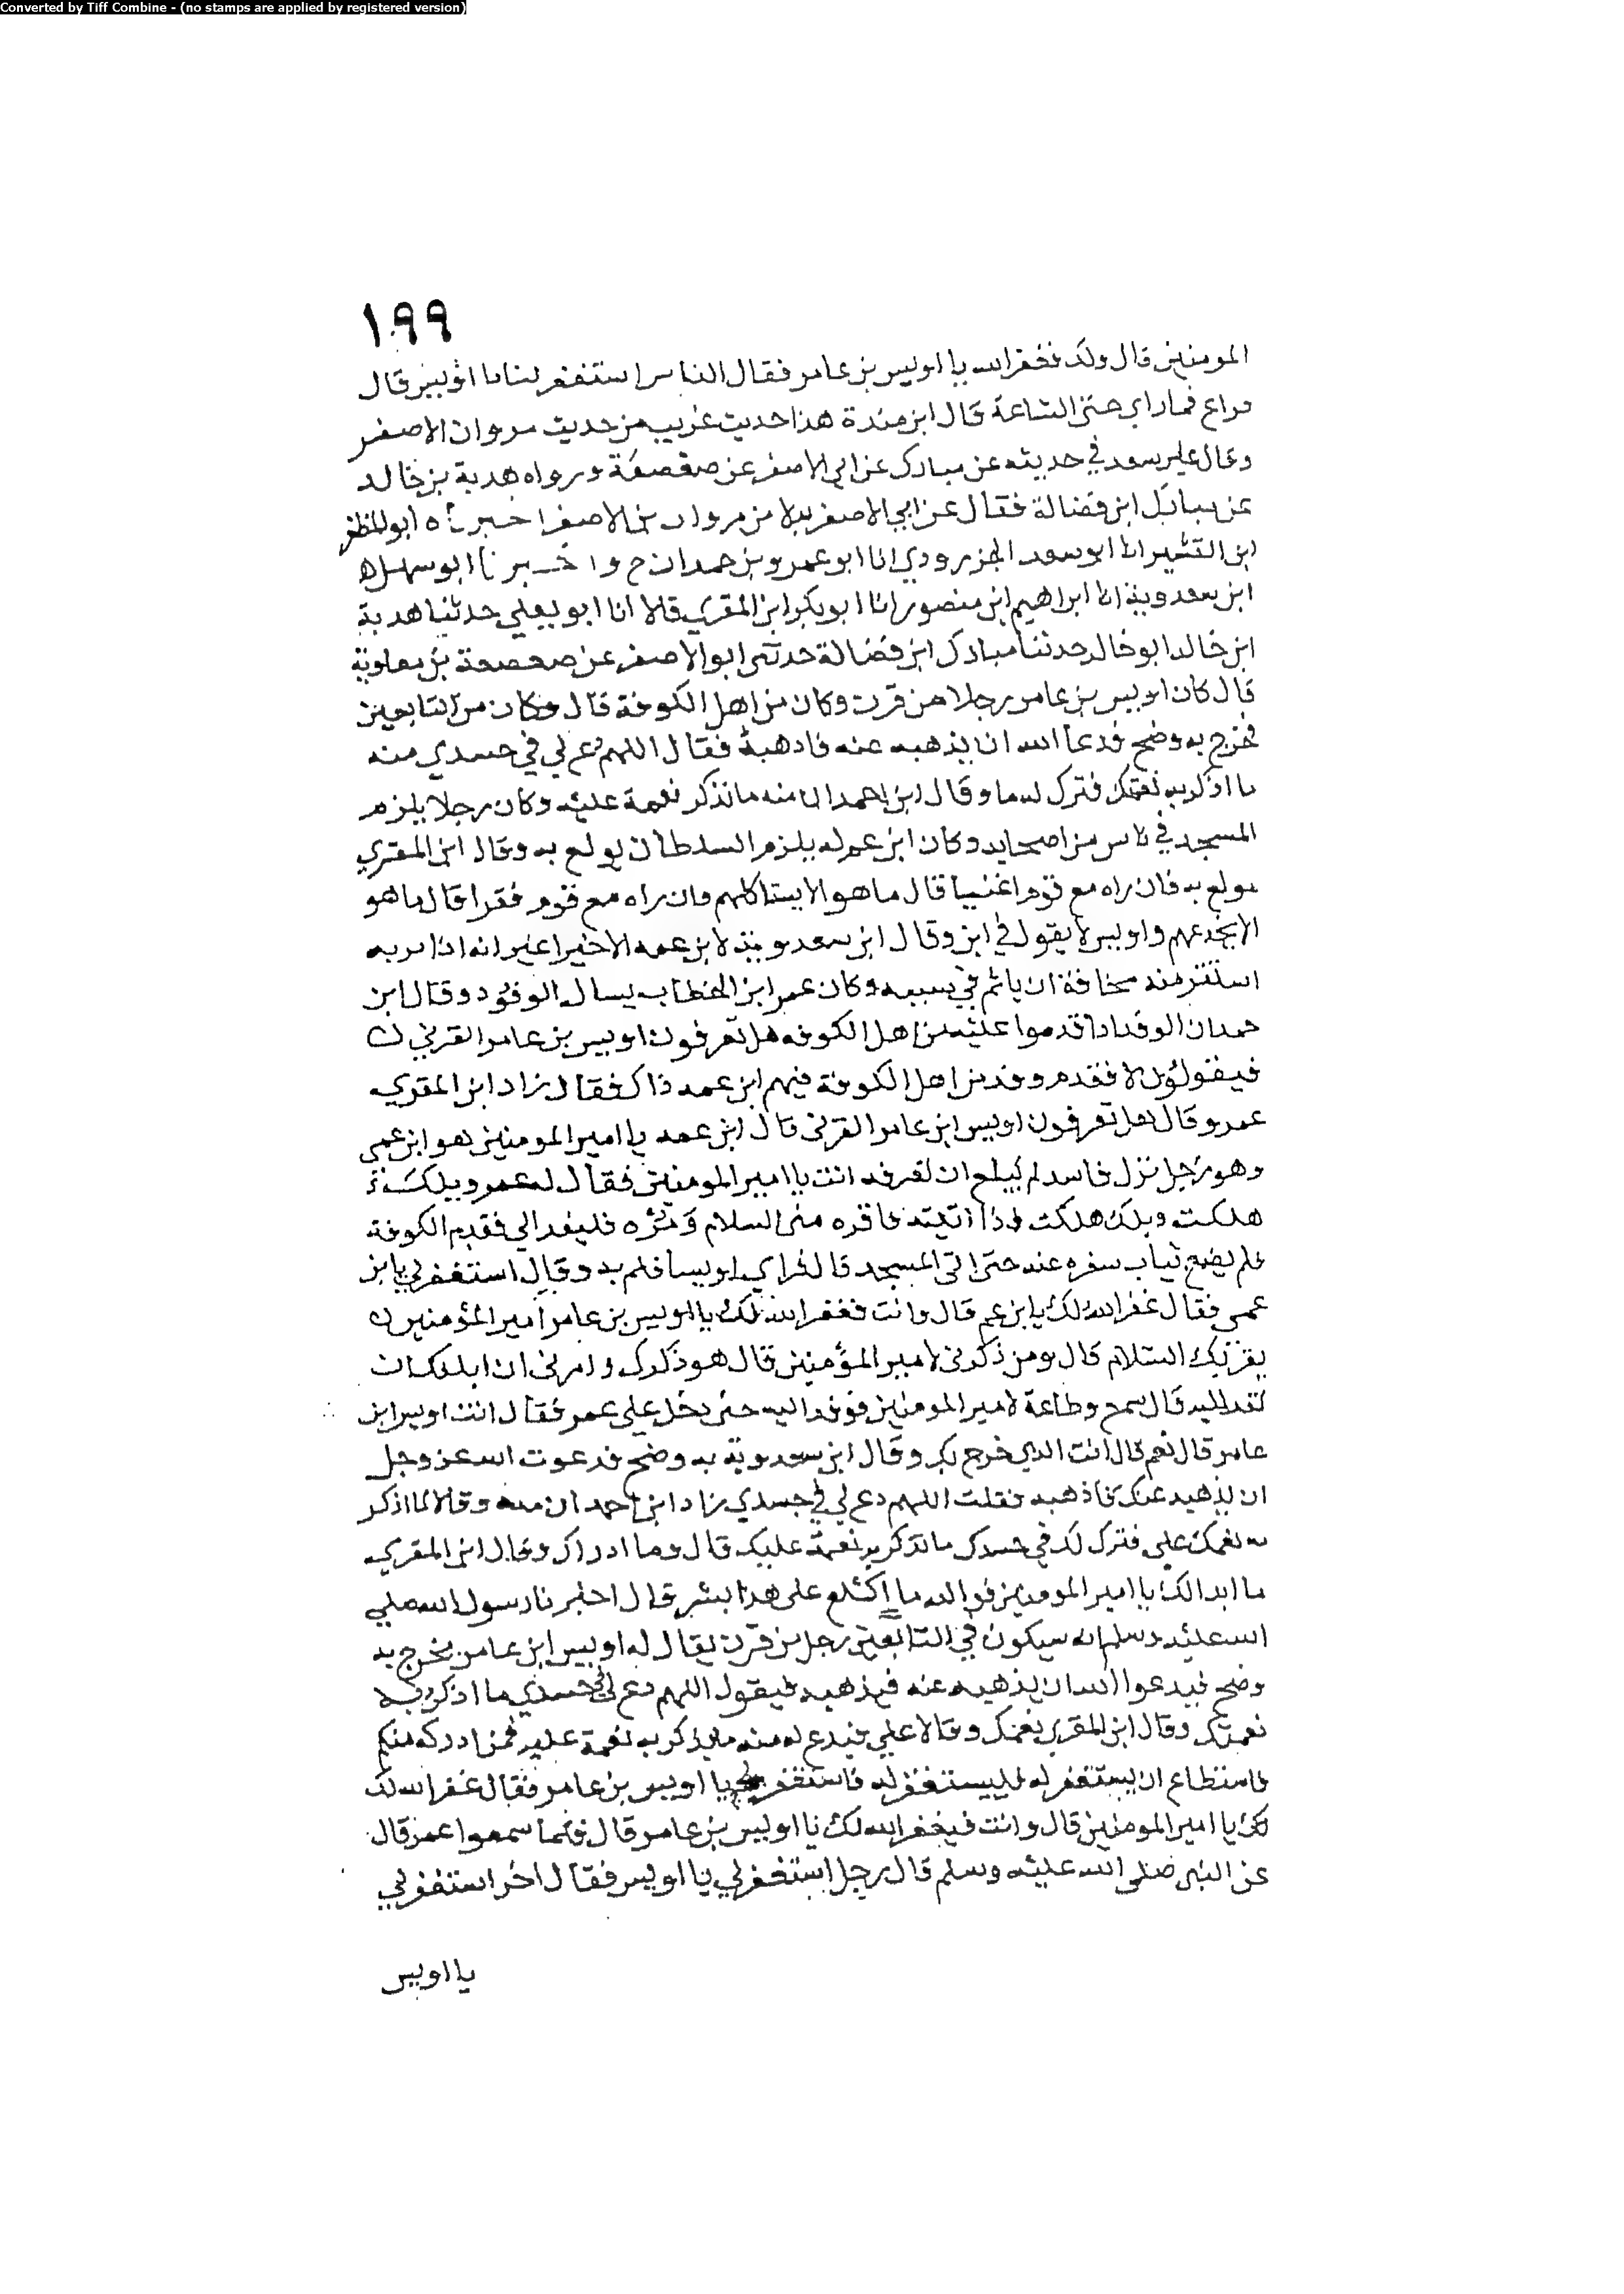 Converted by Tiff Combine - (no stamps are applied by registered version)
١٩٩
المومنين قال ولك فغفر الله يا اويس بن عامر فقال الناس استغفر لنا يا اويس قال
فراع فما راي حتى الساعة قال ابن مندة هذا حديث غريب من حديث مروان الاصفر
وقال علي سعد في حديثه عن مبارك عن ابي الاصفر عن صعصعة ورواه هدبة بن خالد
عن مبارك ابن فضالة فقال عن ابي الاصفر بدلا من مروان بن الاصفر اخبرناه ابو المظفر
ابن القشير انا ابو سعد الجنزرودي انا ابو عمرو بن حمدان ح واخبرنا ابو سهل
ابن سعدوية انا ابراهيم ابن منصور انا ابو بكر ابن المقري قالا انا ابو يعلى حدثنا هدبة
ابن خالد ابو خالد حدثنا مبارك ابن فضالة حدثني ابو الاصفر عن صعصعة بن معاوية
قال كان اويس بن عامر رجلا من قرن وكان من اهل الكوفة قال وكان من التابعين
فخرج به وضح فدعا الله ان يذهبه عنه فاذهبه فقال اللهم دع لي في جسدي منه
ما اذكر به نعمتك فترك له ما وقال ابن حمدان منه ما تذكر نعمة عليه وكان رجلا يلزم
المسجد في ناس من اصحابه وكان ابن عم له يلزم السلطان يولع به وقال ابن المقري
مولع به فان راه مع قوم اغنيا قال ما هو الا يستاكلهم وان راه مع قوم فقرا قال ما هو
الا يخدعهم واويس لا يقول في ابن وقال ابن سعدوية لابن عمه الا خيرا غير انه اذا مر به
استتر منه مخافة ان ياثم في سببه وكان عمر ابن الخطاب يسال الوفود وقال ابن
حمدان الوفد اذا قدموا عليه من اهل الكوفه هل تعرفون اويس بن عامر القرني
فيقولون لا فقدم وفد من اهل الكوفة فيهم ابن عمه ذاك فقال زاد ابن المقري
عمر وقال هل تعرفون اويس ابن عامر القرني قال ابن عمه يا امير المومنين هو ابن عمي
وهو رجل نزل فاسد لم يبلغ ان تعرفه انت يا امير المومنين فقال له عمر ويلك
هلكت ويلك هلكت اذا اتيته فاقره مني السلام ومره فليفد الي فقدم الكوفة
فلم يضع ثياب سفره عنه حتى اتى المسجد قال فراي اويسا فلم به وقال استغفر لي يا ابن
عمي فقال غفر الله لك يا ابن عم قال وانت فغفر الله لك يا اويس بن عامر امير المؤمنين
يقرئك السلام قال ومن ذكرني لامير المؤمنين قال هو ذكرك وامرني ان ابلغك ان
تفد اليه قال سمع وطاعة لامير المومنين فوفد اليه حتى دخل على عمر فقال انت اويس ابن
عامر قال نعم قال انت الذي خرج بك وقال ابن سعدوية به وضح فدعوت الله عز وجل
ان يذهبه عنك فاذهبه فقلت اللهم دع لي في جسدي زاد ابن حمدان منه وقالا ما اذكر
به نعمتك علي فترك لك في جسدك ما تذكر به نعمة عليك قال وما ادراك وقال ابن المقري
ما ادراك يا امير المومنين فوالله ما اطلع على هذا بشر قال اخبرنا رسول الله صلى
الله عليه وسلم انه سيكون في التابعين رجل من قرن يقال له اويس ابن عامر يخرج به
وضح فيدعوا الله ان يذهبه عنه فيذهبه فيقول اللهم دع لي في جسدي ما اذكر به
نعمتك وقال ابن المقري نعمك وقالا علي فيدع له منه ما يذكر به نعمة عليه فمن ادركه منكم
فاستطاع ان يستغفر له فليستغفر له فاستغفر لي يا اويس بن عامر فقال غفر الله لك
لك يا امير المومنين قال وانت فيغفر الله لك يا اويس بن عامر قال فلما سمعوا عمر قال
عن النبي صلى الله عليه وسلم قال رجل استغفر لي يا اويس فقال اخر استغفر لي
يا اويس